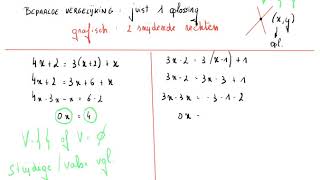 BEPAALDE VERGELIJKING : juist 1 oplossing
grafisch : 2 snijdende rechten
(x,y)
opl.
4x + 2 = 3(x+2) + x
4x + 2 = 3x + 6 + x
4x - 3x - x = 6 - 2
0x = 4
V = { } of V = ∅
Strijdige / valse vgl.
3x - 2 = 3(x-1) + 1
3x - 2 = 3x - 3 + 1
3x - 3x = -3 + 1 - 2
0x =